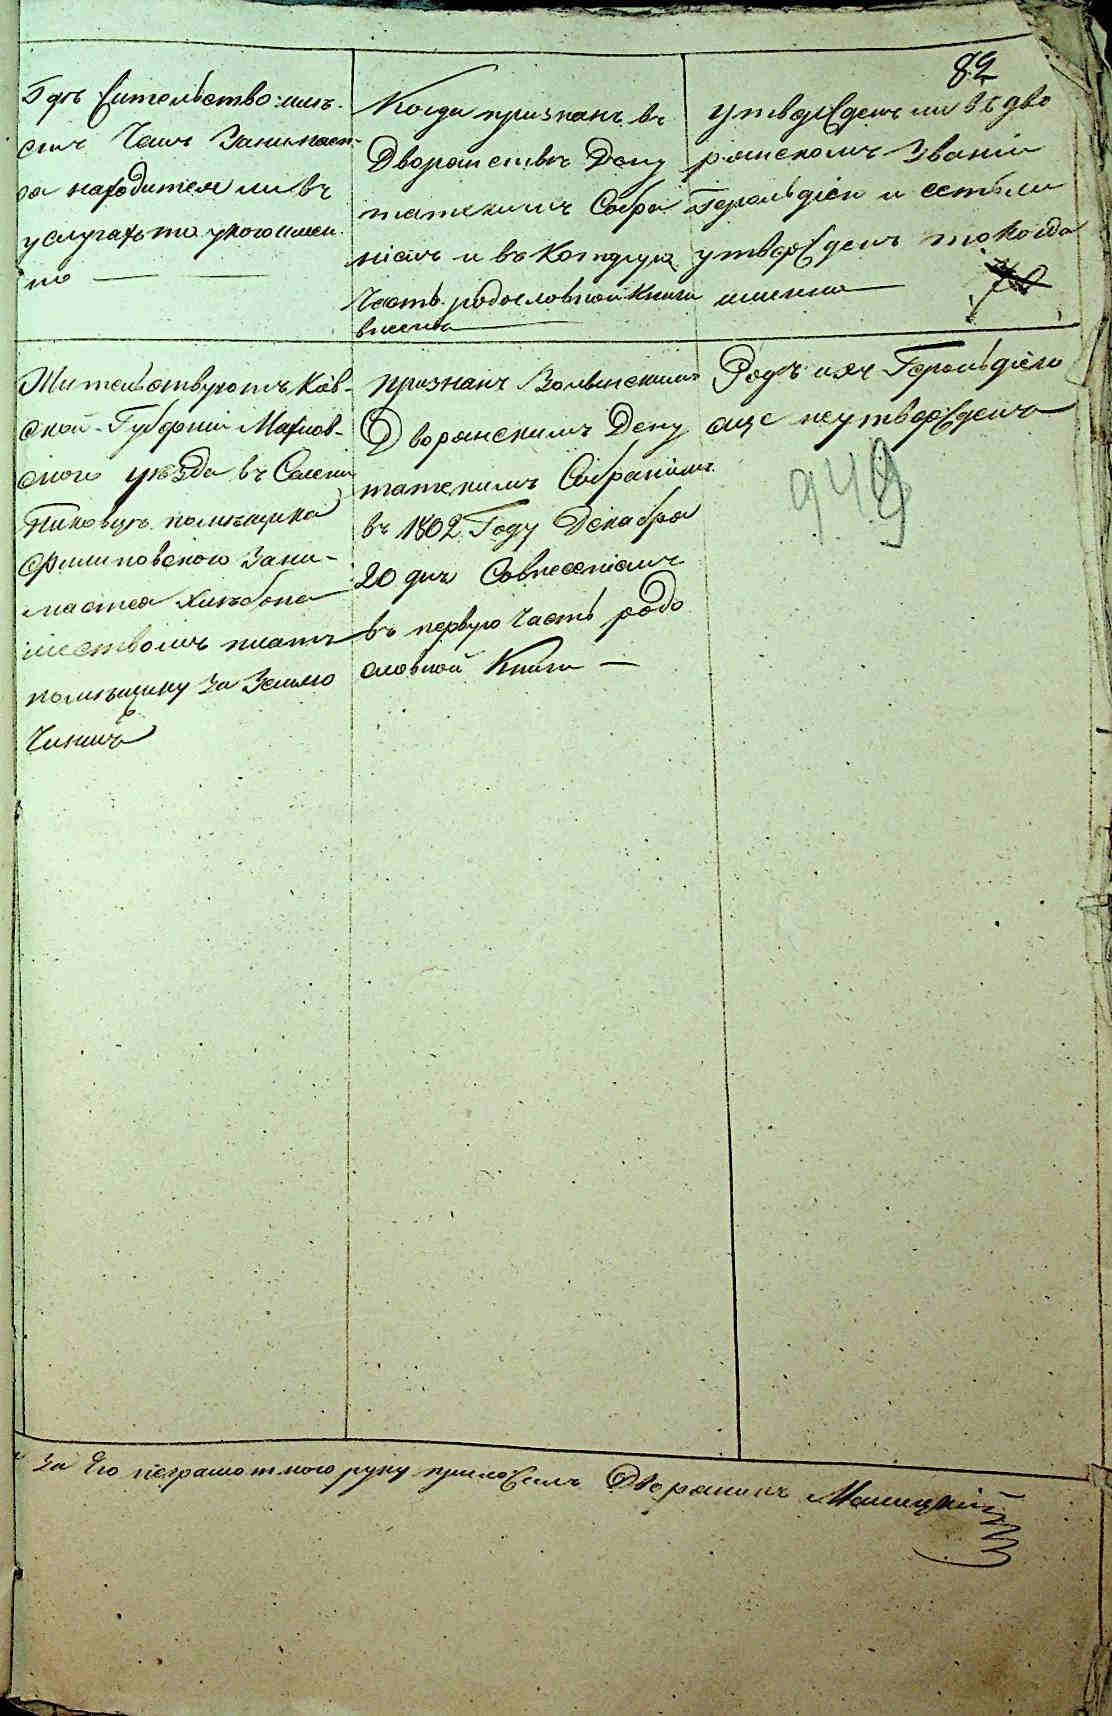 82
Гдѣ жительство имѣ-
етъ Чемъ Занимает-
ся находится ли въ
услугахъ то укого имен-
но
Когда признанъ въ
Дворянствѣ Депу
татскимъ Собра
ніемъ и въ Которую
Часть родословной Книги
внесенъ
утвержденъ ли въ дво
рянскомъ Званіи
Герольдіею и естьли
утвержденъ то когда
именно
Жительствуютъ Кіев-
ской Губерніи Махнов-
скаго уѣзда въ Селеніи
помѣщика
Филиповского Зани-
мается хлѣбопа
шествомъ платитъ
помѣщику За Землю
Чиншъ
признанъ Волынскимъ
Дворянскимъ Депу
татскимъ Собраніемъ
въ 1802 Году Декабря
20 дня Совнесеніемъ
въ первую Часть родо
словной Книги
Родъ ихъ Герольдіею
еще неутвержденъ
949
За Его неграмотного руку приложилъ Дворянинъ